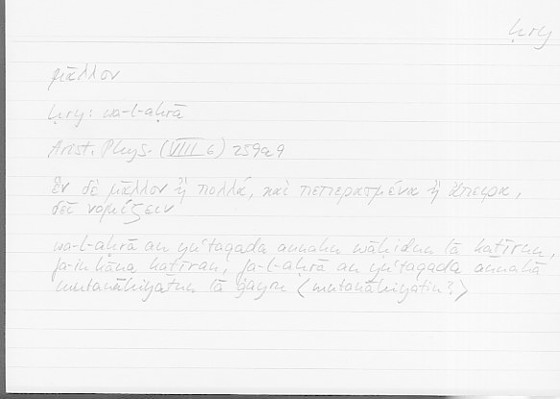 ḥry
μᾶλλον
ḥry: wa-l-aḥrā
Arist. Phys. (VIII 6) 259a9
Ἓν δὲ μᾶλλον ἢ πολλά, καὶ πεπερασμένα ἢ ἄπειρα,
δεῖ νομίζειν
wa-l-aḥrā an yuʿtaqada annahu wāḥidun lā kaṯīrun,
fa-in kāna kaṯīran, fa-l-aḥrā an yuʿtaqada annahā
mutanāhiyatun lā ġayru ⟨mutanāhiyatin?⟩